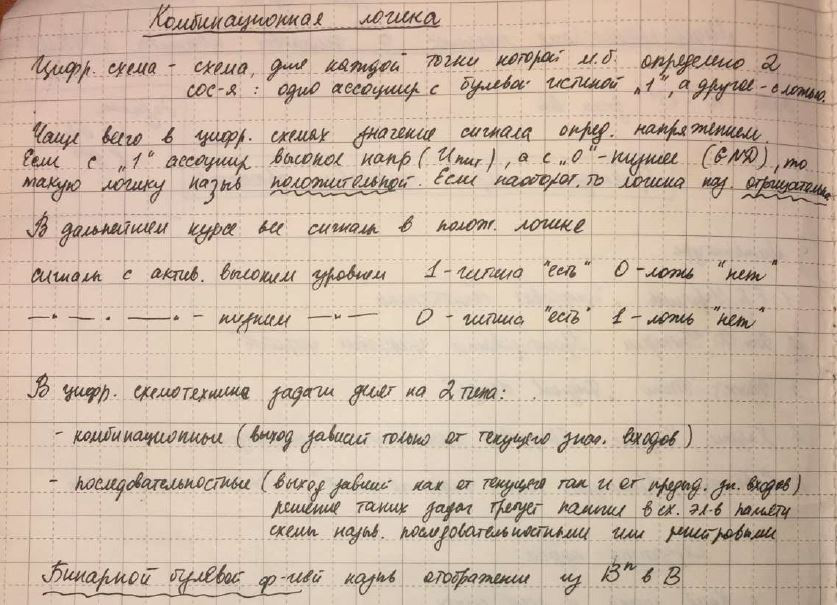 Комбинационная логика
Цифр. схема - схема, для каждой точки которой м.б. определено 2
сос-я : одно ассоциир с булевой истиной "1", а другое - с ложью.
Чаще всего в цифр. схемах значение сигнала опред. напряжением.
Если с "1" ассоциир высокое напр (Uпит), а с "0" - низкое (GND), то
такую логику назыв положительной. Если наоборот, то логика наз. отрицательн
В дальнейшем курсе все сигналы в полож. логике
сигналы с актив. высоким уровнем 1 - истина "есть" 0 - ложь "нет"
—"— " —"— " - низким —"— 0 - истина "есть" 1 - ложь "нет"
В цифр. схемотехника задачи делят на 2 типа:
- комбинационные (выход зависит только от текущего знач. входов)
- последовательностные (выход зависит как от текущего так и от предыд. зн. входов)
решение таких задач требует наличие в сх. эл-в памяти
схемы назыв. последовательностными или регистровыми
Бинарной булевой ф-цией назыв отображение из Bⁿ в B